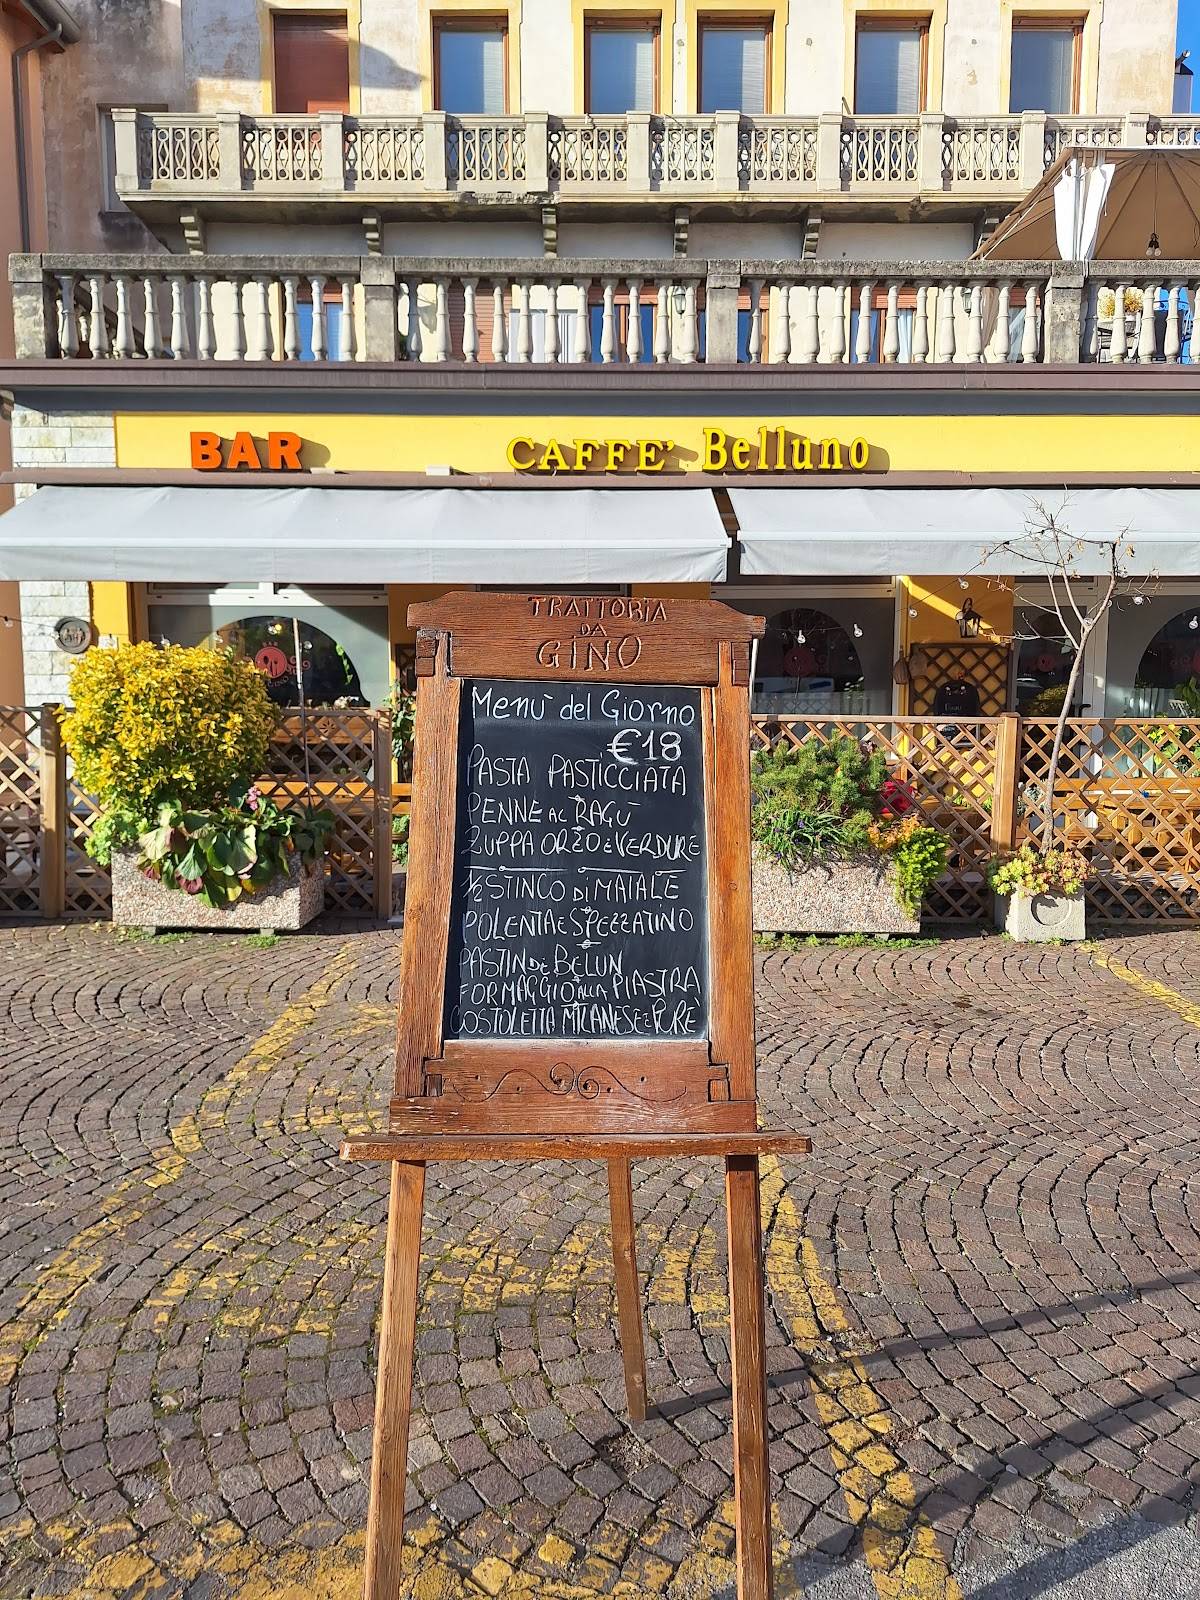 BAR
CAFFE' Belluno
TRATTORIA
DA
GINO
Menù del Giorno
€18
PASTA PASTICCIATA
PENNE AL RAGÙ
ZUPPA ORZO E VERDURE
1/2 STINCO DI MAIALE
POLENTA E SPEZZATINO
PASTIN DE BELUN
FORMAGGIO ALLA PIASTRA
COSTOLETTA MILANESE E PURÈ